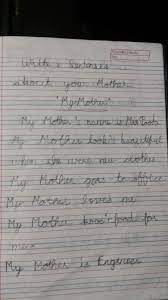 Write 5 sentences
about your Mother.
"My Mother"
My Mother's name is Mrs Pooja
My Mother look's beautiful
when she were new clothe
My Mother goes to office
My Mother loves me
My Mother food for
My Mother is Engineer